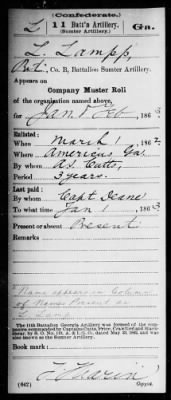 (Confederate.)
L 11 Batt'n Artillery. Ga.
(Sumter Artillery.)
L. Lampp,
Pvt., Co. B, Battalion Sumter Artillery.
Appears on
Company Muster Roll
of the organization named above,
for Jan & Feb, 1863
Enlisted:
When March 1, 1862
Where Americus Ga.
By A.S. Cutts,
Period 3 years.
Last paid:
By Capt Deane
To what time Jan 1, 1863
Present or absent Present
Remarks:
Name appears in Column
of Names Present as
L. Lamp
The 11th Battalion Georgia Artillery was formed of the
commands commanded by Captains
by S. O. No. A. & I. G. O., dated May 22, 1862, and was
also known as the Sumter Artillery.
Book mark:
(642) Copyist.